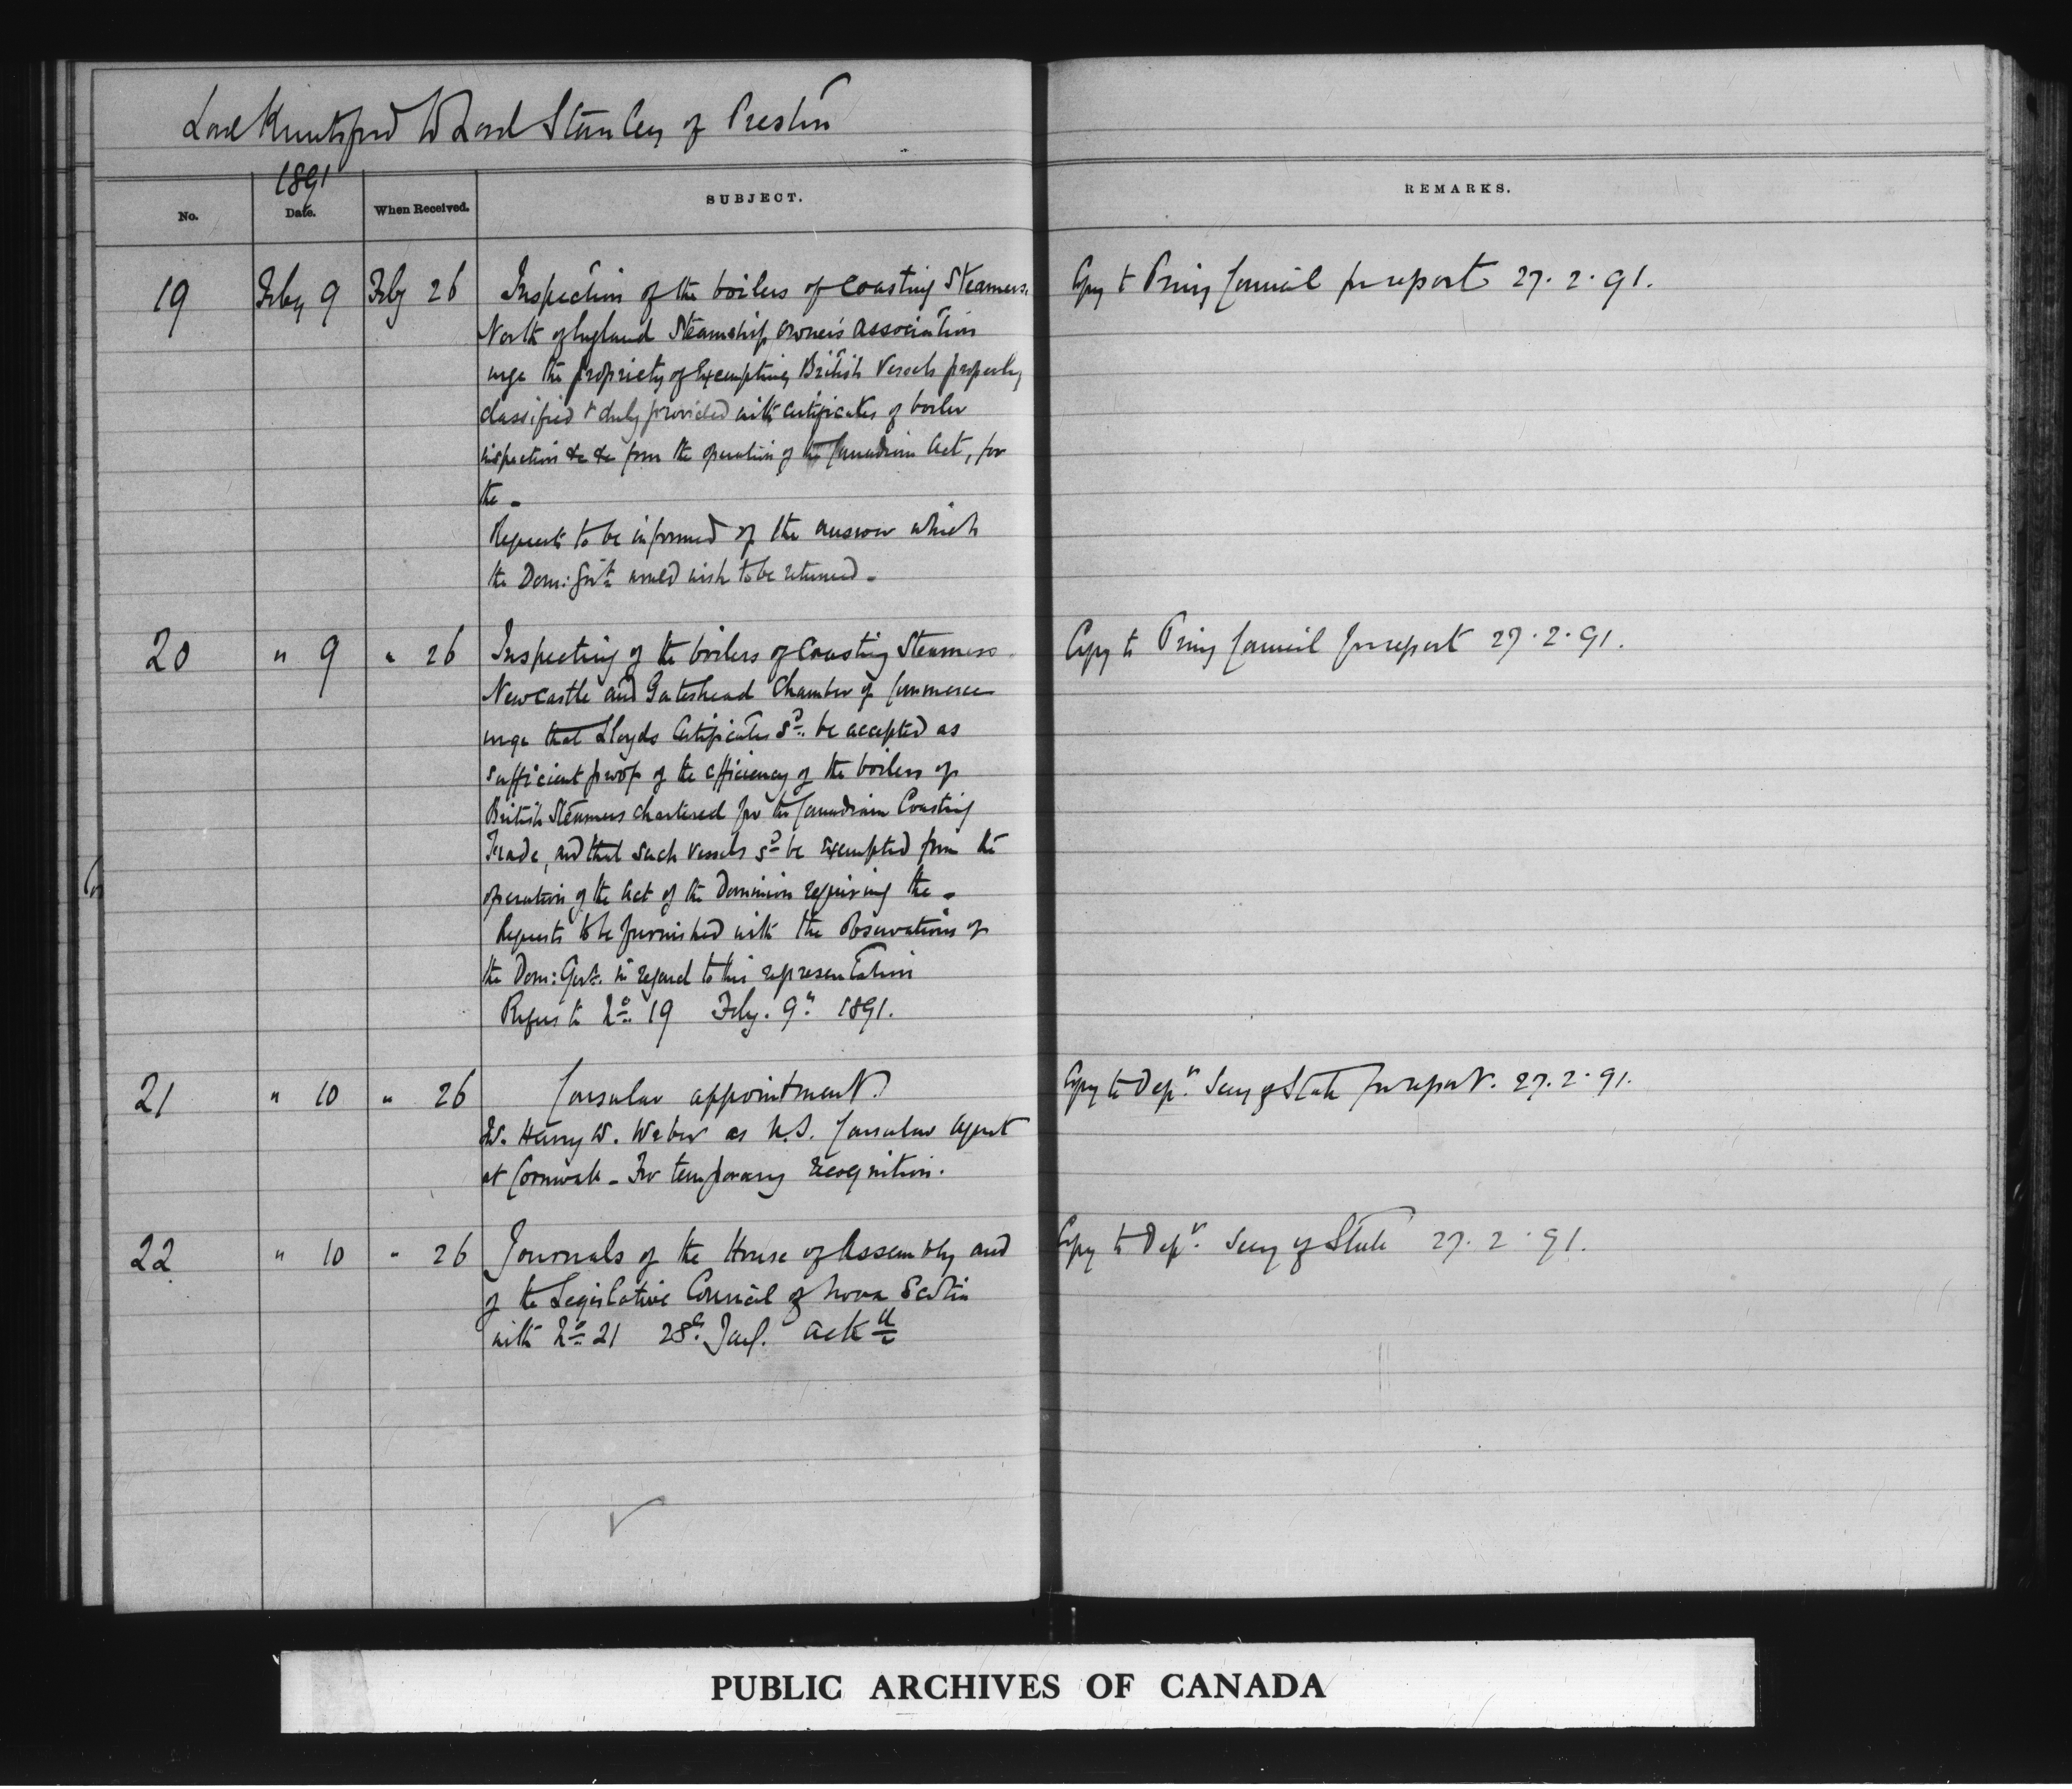 Lord Knutsford to Lord Stanley of Preston
1891
No. Date. When Received. SUBJECT. REMARKS.
19 Feby 9 Feby 26 Inspection of the boilers of Coasting Steamers. Copy to Privy Council for report 27.2.91.
North of England Steamship Owners Association
urge the propriety of Exempting British Vessels properly
classified & duly provided with certificates of boiler
inspection &c &c from the operation of the Canadian Act, for
the -
Requests to be informed of the answer which
the Dom: Govt. would wish to be returned -
20 " 9 " 26 Inspecting of the boilers of Coasting Steamers Copy to Privy Council for report 27.2.91.
Newcastle and Gateshead Chamber of Commerce
urge that Lloyds Certificates sd. be accepted as
sufficient proof of the efficiency of the boilers of
British Steamers chartered for the Canadian Coasting
Trade, and that such vessels sd be exempted from the
operation of the Act of the Dominion requiring the -
Requests to be furnished with the Observations of
the Dom: Govt. in regard to this representation
Refers to No. 19 Feby. 9th 1891.
21 " 10 " 26 Consular appointment. Copy to Depy. Secy of State for report. 27.2.91.
Harry W. Weber as U.S. Consular Agent
at Cornwall - For temporary recognition.
22 " 10 " 26 Journals of the House of Assembly and Copy to Depy. Secy of State 27.2.91.
of the Legislative Council of Nova Scotia
with No. 21 28th Jany.
PUBLIC ARCHIVES OF CANADA